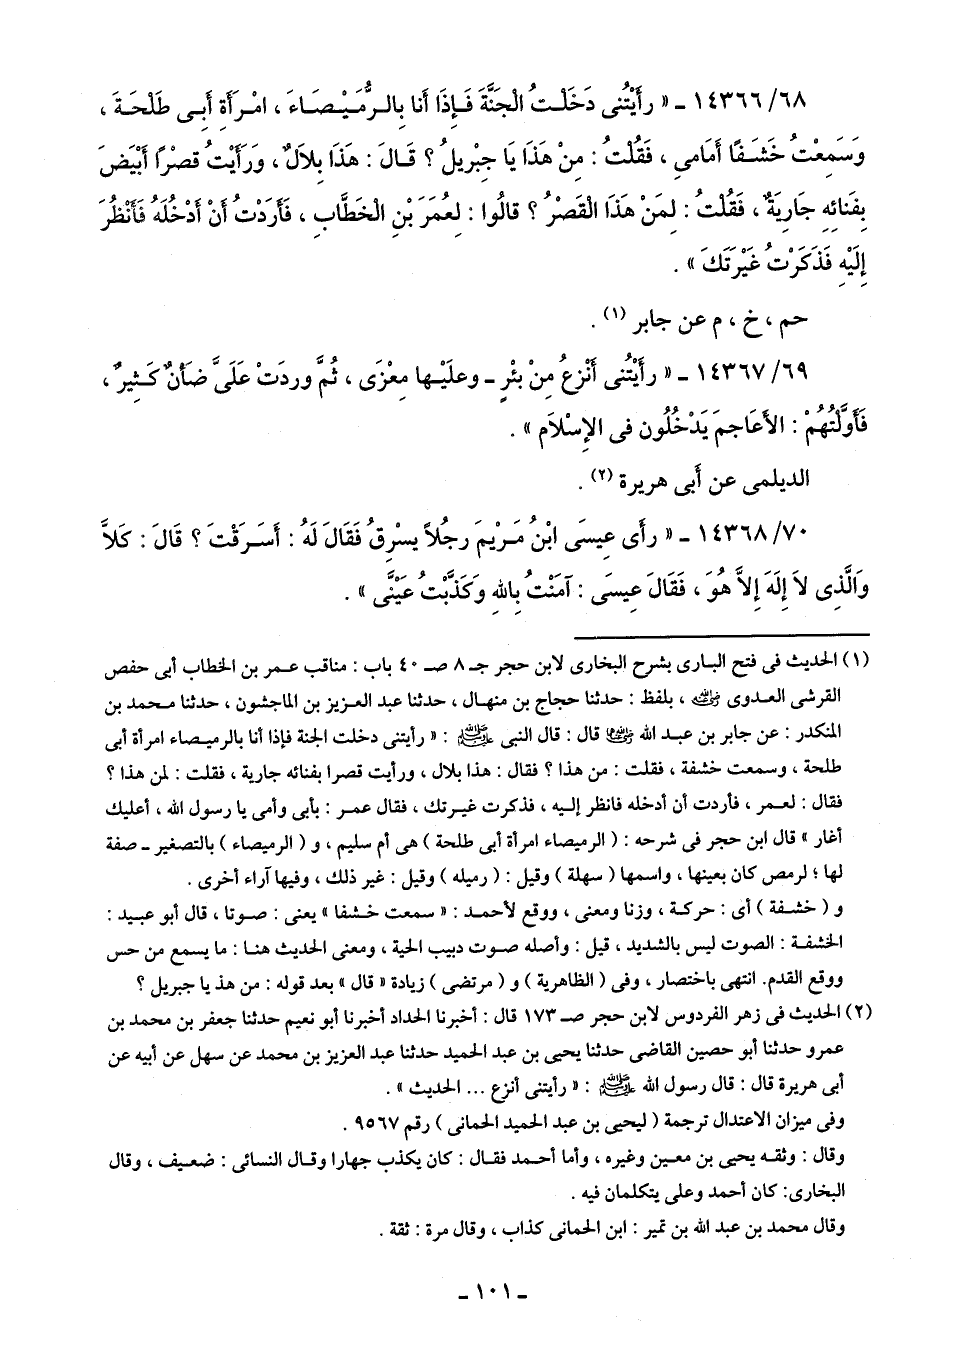 ١٤٣٦٦/٦٨ ـ « رأَيْتُنى دَخَلْتُ الْجَنَّةَ فَإِذَا أَنا بالرُّمَيْصَاءَ ، امْرأَةِ أَبِى طَلْحَةَ ،
وَسَمِعْتُ خَشَفًا أَمَامِى ، فَقُلْتُ : مِنْ هَذَا يَا جِبْرِيلُ ؟ قَالَ : هَذَا بِلَالٌ ، وَرَأَيْتُ قَصْرًا أَبْيَضَ
بِفنَائِهِ جَارِيَةٌ ، فَقُلْتُ : لِمَنْ هَذَا الْقَصْرُ ؟ قالُوا : لِعُمَرَ بْنِ الْخَطَّابِ ، فَأَرَدْتُ أَنْ أَدْخُلَهُ فَأَنْظُرَ
إِلَيْهِ فَذَكَرْتُ غَيْرَتَكَ » .
حم ، خ ، م عن جابر (١) .
١٤٣٦٧/٦٩ ـ « رأَيْتُنى أَنْزِعُ مِنْ بئْرٍ ـ وعلَيْها مِعْزَى ، ثُمَّ وردَتْ عَلَىَّ ضَأنٌ كَثِيرٌ ،
فَأَوَّلْتُهُمْ : الأَعَاجِمَ يَدْخُلُون فى الإِسْلَامِ » .
الديلمى عن أبى هريرة (٢) .
١٤٣٦٨/٧٠ ـ « رأَى عِيسَى ابْنُ مَرْيمَ رجُلاً يسْرِقُ فَقَالَ لَهُ : أَسَرَقْتَ ؟ قَالَ : كَلاَّ
وَالَّذِى لاَ إِلَهَ إِلاَّ هُوَ ، فَقَالَ عِيسَى : آمَنْتُ بِاللهِ وَكَذَّبْتُ عَيْنَّى » .
(١) الحديث فى فتح البارى بشرح البخارى لابن حجر جـ ٨ صـ ٤٠ باب : مناقب عمر بن الخطاب أبى حفص
القرشى العدوى رضي الله عنه ، بلفظ : حدثنا حجاج بن منهال ، حدثنا عبد العزيز بن الماجشون ، حدثنا محمد بن
المنكدر : عن جابر بن عبد الله رضي الله عنهما قال : قال النبى ﷺ : « رأيتنى دخلت الجنة فإذا أنا بالرميصاء امرأة أبى
طلحة ، وسمعت خشفة ، فقلت : من هذا ؟ فقال : هذا بلال ، ورأيت قصرا بفنائه جارية ، فقلت : لمن هذا ؟
فقال : لعمر ، فأردت أن أدخله فانظر إليه ، فذكرت غيرتك ، فقال عمر : بأبى وأمى يا رسول الله ، أعليك
أغار » قال ابن حجر فى شرحه : ( الرميصاء امرأة أبى طلحة ) هى أم سليم ، و ( الرميصاء ) بالتصغير ـ صفة
لها ؛ لرمص كان بعينها ، واسمها ( سهلة ) وقيل : ( رميله ) وقيل : غير ذلك ، وفيها آراء أخرى .
و ( خشفة ) أى : حركة ، وزنا ومعنى ، ووقع لأحمد : « سمعت خشفا » يعنى : صوتا ، قال أبو عبيد :
الخشفة : الصوت ليس بالشديد ، قيل : وأصله صوت دبيب الحية ، ومعنى الحديث هنا : ما يسمع من حس
ووقع القدم. انتهى باختصار ، وفى ( الظاهرية ) و ( مرتضى ) زيادة « قال » بعد قوله : من هذ يا جبريل ؟
(٢) الحديث فى زهر الفردوس لابن حجر صـ ١٧٣ قال : أخبرنا الحداد أخبرنا أبو نعيم حدثنا جعفر بن محمد بن
عمرو حدثنا أبو حصين القاضى حدثنا يحيى بن عبد الحميد حدثنا عبد العزيز بن محمد عن سهل عن أبيه عن
أبى هريرة قال : قال رسول الله ﷺ : « رأيتنى أنزع ... الحديث » .
وفى ميزان الاعتدال ترجمة ( ليحيى بن عبد الحميد الحمانى ) رقم ٩٥٦٧ .
وقال : وثقه يحيى بن معين وغيره ، وأما أحمد فقال : كان يكذب جهارا وقال النسائى : ضعيف ، وقال
البخارى: كان أحمد وعلى يتكلمان فيه .
وقال محمد بن عبد الله بن نمير : ابن الحمانى كذاب ، وقال مرة : ثقة .
ـ ١٠١ ـ